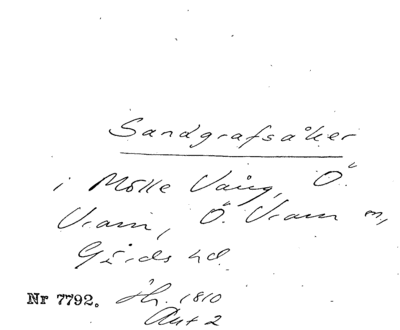 Sandgrafsåker
i Mölle Vång, Ö.
Vram, Ö. Vram sn,
Gärds hd.
Nr 7792. Hr. 1810
Akt 2